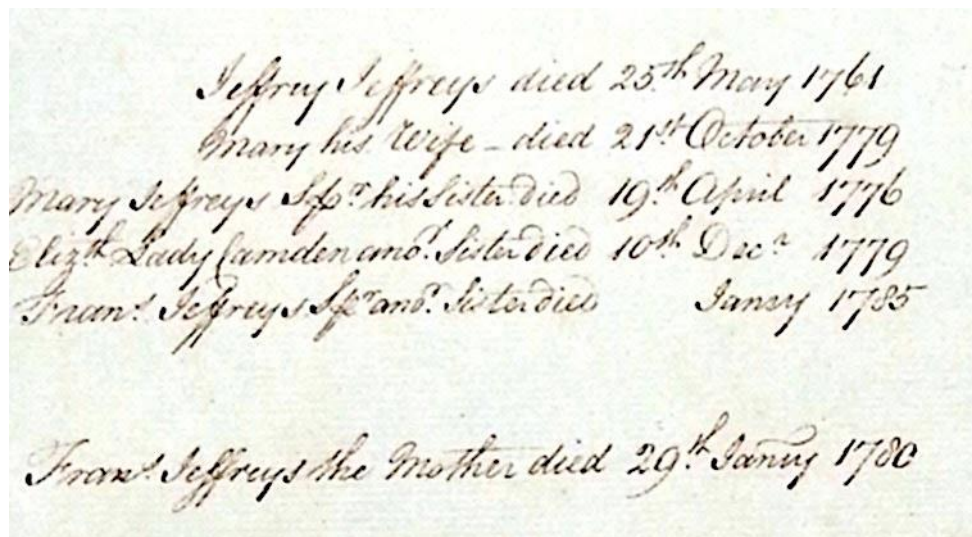 Jeffrey Jeffreys died 25th May 1761
Mary his Wife - died 21st October 1779
Mary Jeffreys Spr. his Sister died 19th April 1776
Elizth Lady Camden anor. Sister died 10th Decr 1779
Frans. Jeffreys Spr anor. Sister died Janry 1785
Frans. Jeffreys the Mother died 29th Janry 1780